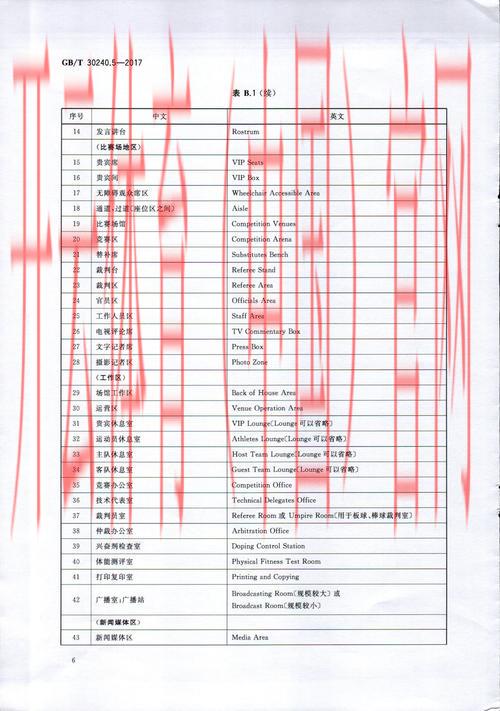 GB/T 30240.5—2017
表 B.1(续)
序号 中文 英文
14 发言讲台 Rostrum
(比赛场地区)
15 贵宾席 VIP Seats
16 贵宾间 VIP Box
17 无障碍观众席区 Wheelchair Accessible Area
18 通道;过道(座位区之间) Aisle
19 比赛场馆 Competition Venues
20 竞赛区 Competition Arena
21 替补席 Substitutes Bench
22 裁判台 Referee Stand
23 裁判区 Referee Area
24 官员区 Officials Area
25 工作人员区 Staff Area
26 电视评论席 TV Commentary Box
27 文字记者席 Press Box
28 摄影记者区 Photo Zone
(工作区)
29 场馆工作区 Back of House Area
30 运营区 Venue Operation Area
31 贵宾休息室 VIP Lounge〔Lounge 可以省略〕
32 运动员休息室 Athletes Lounge〔Lounge 可以省略〕
33 主队休息室 Host Team Lounge〔Lounge 可以省略〕
34 客队休息室 Guest Team Lounge〔Lounge 可以省略〕
35 竞赛办公室 Competition Office
36 技术代表室 Technical Delegates Office
37 裁判员室 Referee Room 或 Umpire Room〔用于板球、棒球裁判室〕
38 仲裁办公室 Arbitration Office
39 兴奋剂检查室 Doping Control Station
40 体能测评室 Physical Fitness Test Room
41 打印复印室 Printing and Copying
42 广播室;广播站 Broadcasting Room〔规模较大〕或
Broadcast Room〔规模较小〕
(新闻媒体区)
43 新闻媒体区 Media Area
6